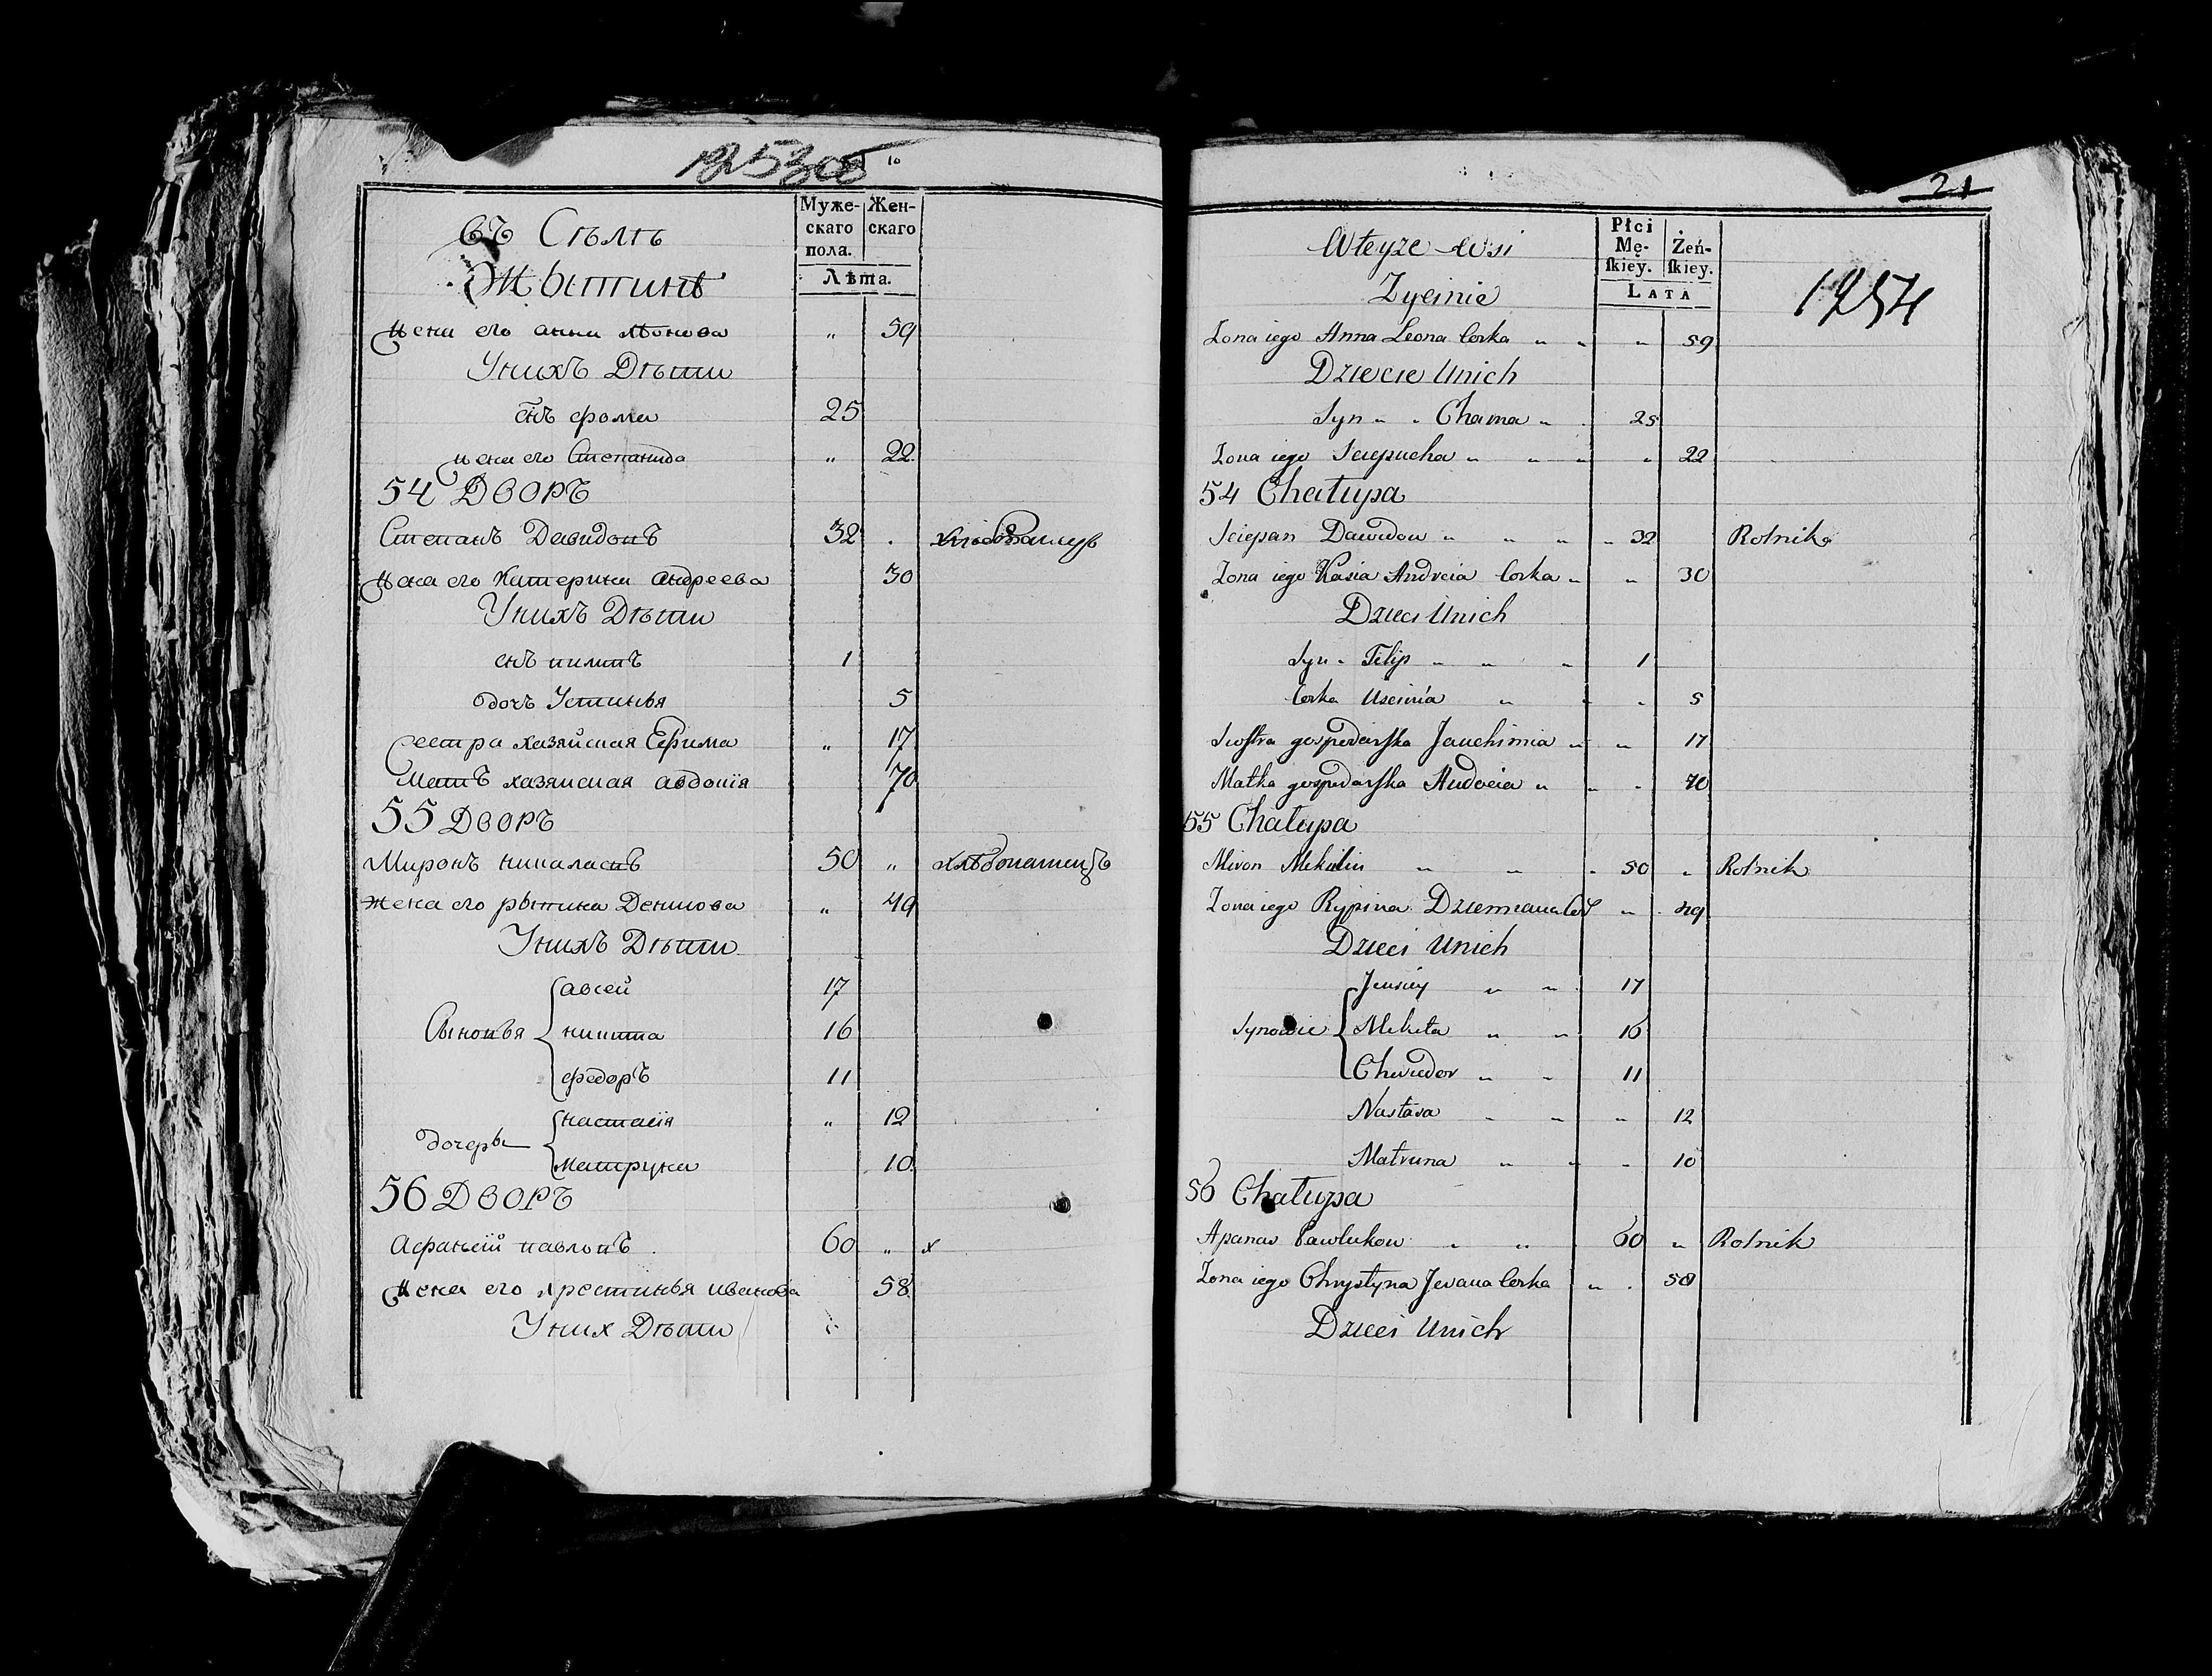 1253об
въ Сѣлѣ
Жытинѣ
Муже-скаго пола. Жен-скаго
Лѣта.
жена его анна лѣонова " 59
Унихъ Дѣти
снъ фома 25
жена его Степанида " 22
54 Дворъ
Степанъ Давидовъ 32 .
жена его Катерина андреева 30
Унихъ Дѣти
снъ пилипъ 1
дочъ Устинья 5
Сестра хазяйская Ефима " 17
Матъ хазяиская авдокія 70
55 Дворъ
Миронъ никалаевъ 50 " хлѣбопашецъ
жена его рыпина Демидова " 49
Унихъ Дѣти
Сыновья
авсей 17
никита 16
федоръ 11
дочеры
настасія " 12
матруна 10
56 Дворъ
Афанасій павловъ 60 " х
жена его хрестинья иванова 58
Уних Дѣти
21
1254
Wteyze wsi
Zycinie
Płci Mę-ſkiey. Żeń-ſkiey.
LATA
Zona iego Anna Leona Corka " " " 59
Dziecie Unich
Syn " " Chama " 25
Zona iego Sciepucha " " " " 22
54 Chałupa
Sciepan Dawidow " " " " 32 Rolnik
Zona iego Kasia Andreia Corka " " 30
Dzieci Unich
Syn " Filip " " " 1
Corka Uscinia " " " 5
Siostra gospodarſka Jauchimia " " 17
Matka gospodarſka Audocia " " " 70
55 Chałupa
Miron Mikulin " " " 50 " Rolnik
Zona iego Rypina Dziemiana Cor " 49
Dzieci Unich
Synowie
Jeusiey " " 17
Mikita " " 16
Chwiedor " " 11
Nastasa " " " 12
Matruna " " " 10
56 Chałupa
Apanas Pawlukow " " 60 " Rolnik
Zona iego Chrystyna Jewana Corka " . 58
Dzieci Unich